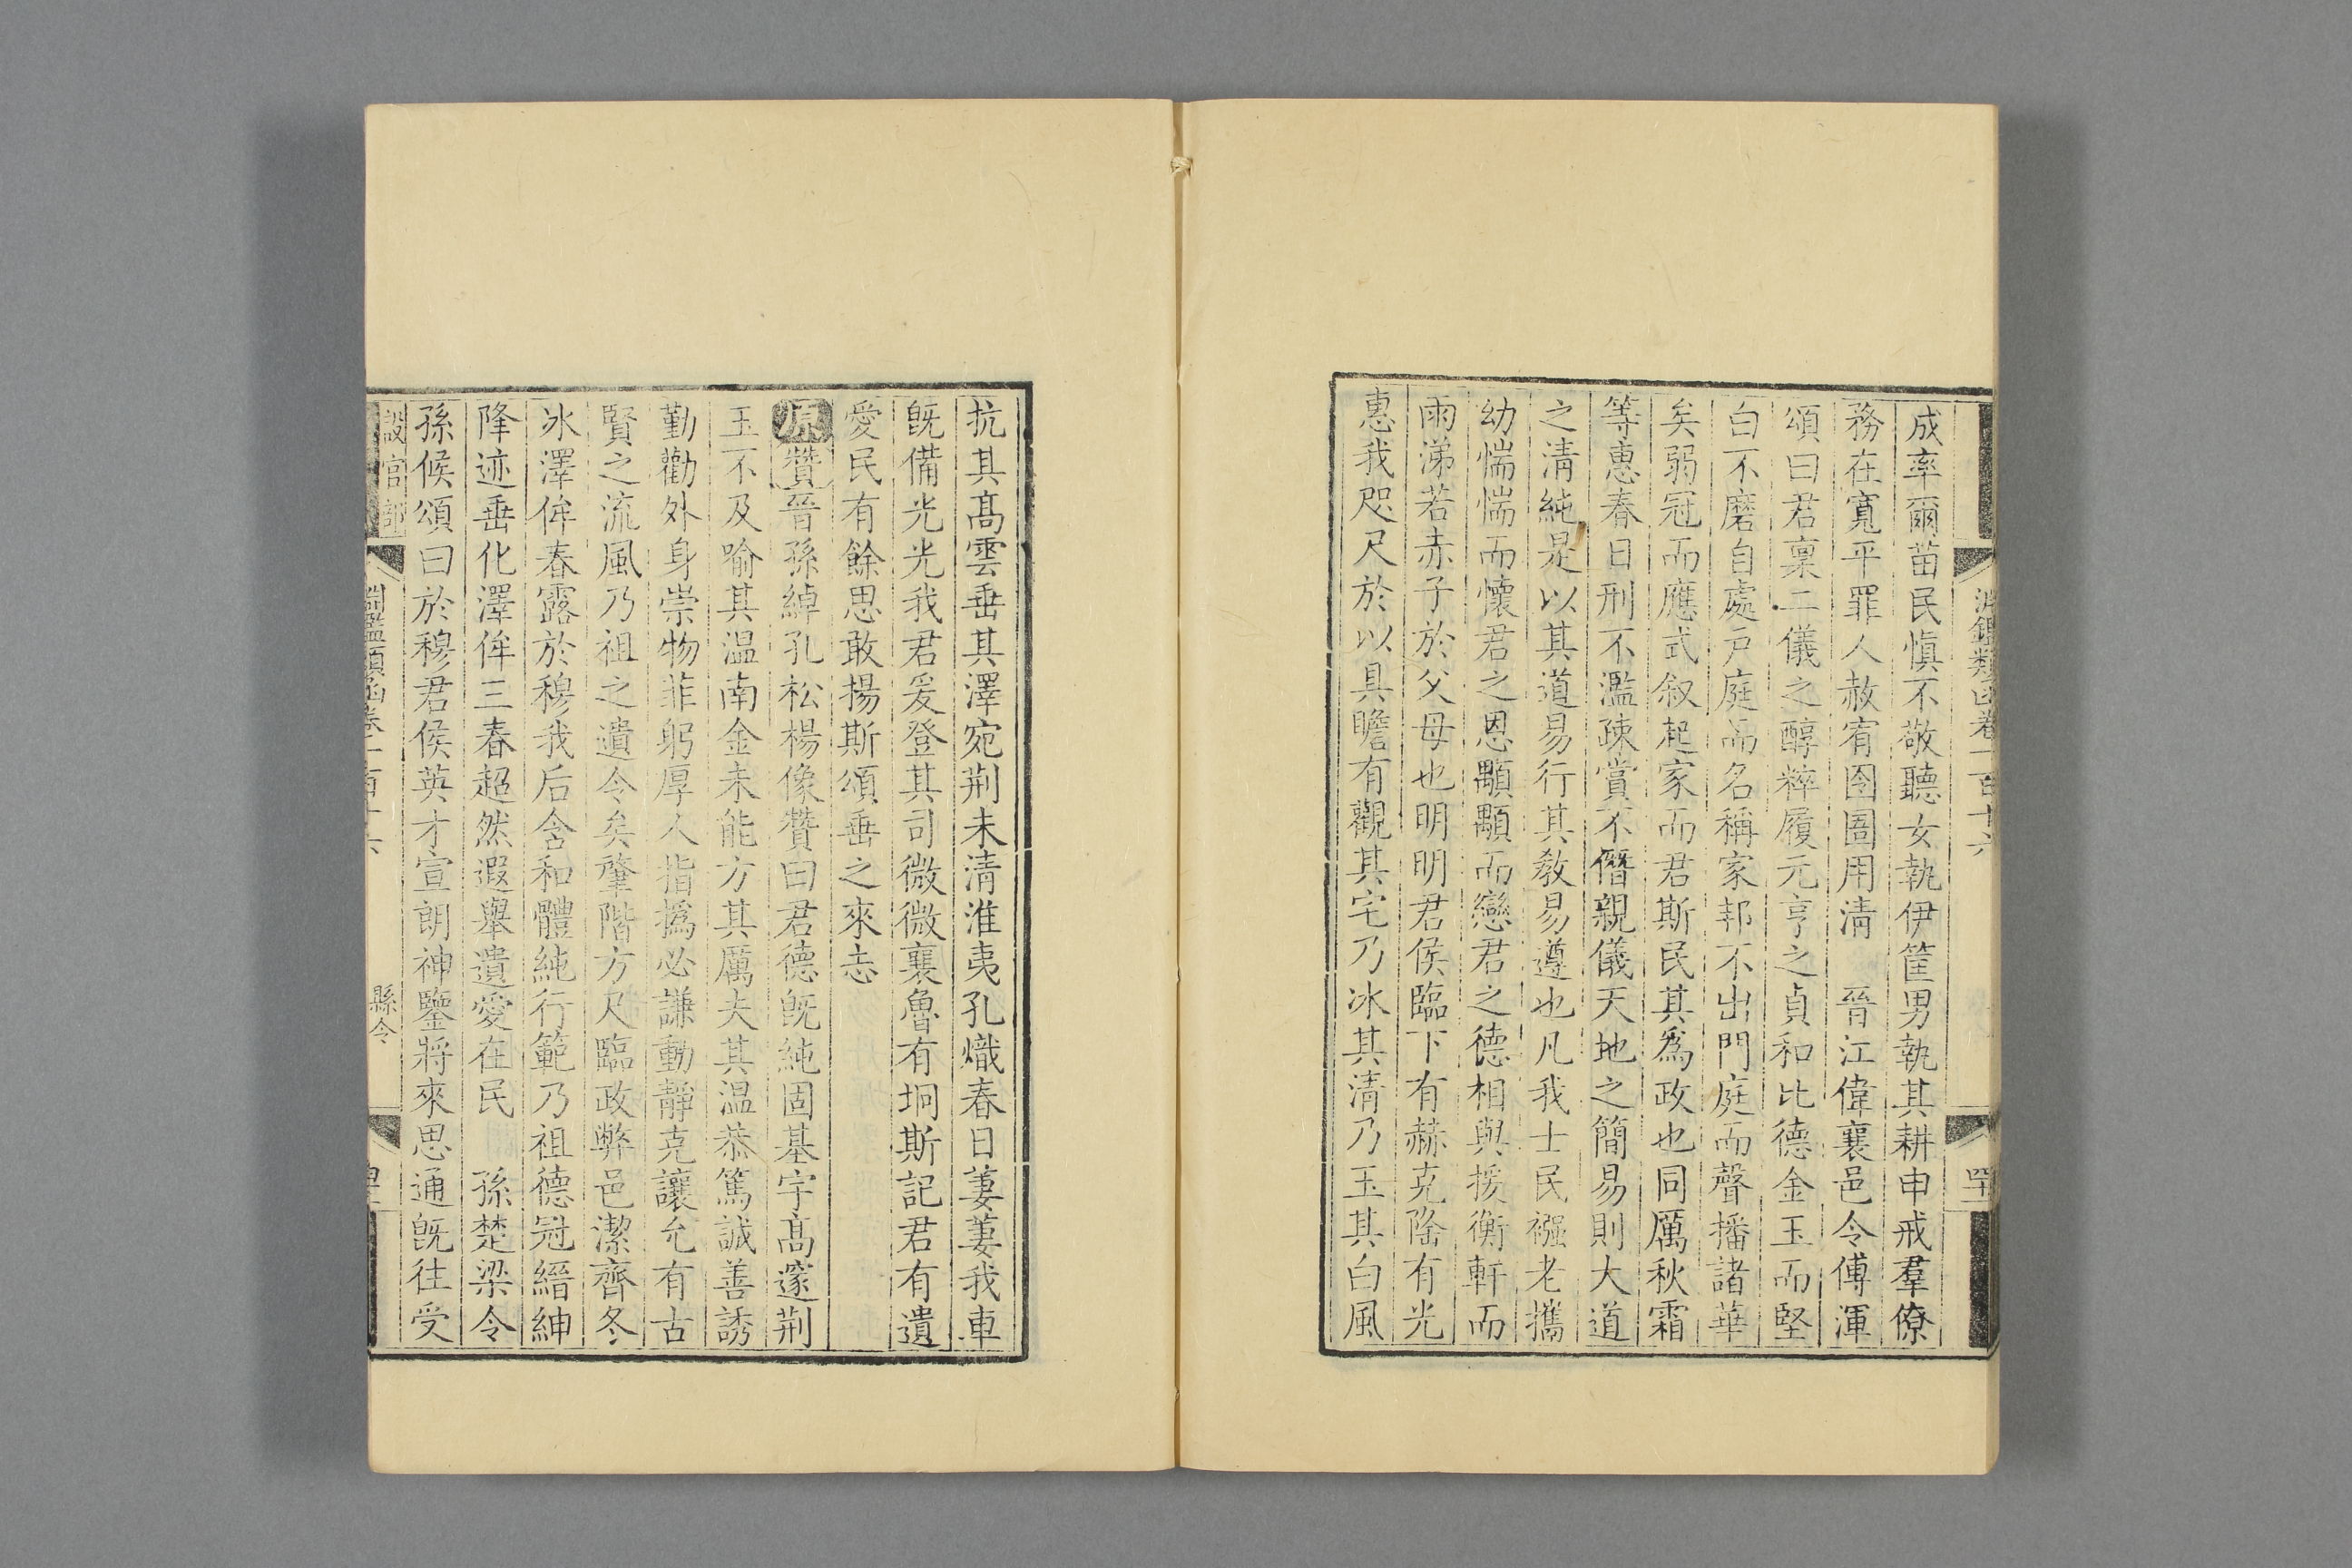 淵鑑類函卷一百十六
成率爾苗民愼不敬聽女執伊筐男執其耕申戒羣僚
務在寬平罪人赦宥囹圄用淸　晉江偉襄邑令傅渾
頌曰君稟二儀之醇粹履元亨之貞和比德金玉而堅
白不磨自處戸庭而名稱家邦不出門庭而聲播諸華
矣弱冠而應式叙起家而君斯民其爲政也同厲秋霜
等惠春日刑不濫疎賞不僭親儀天地之簡易則大道
之淸純是以其道易行其敎易遵也凡我士民襁老攜
幼惴惴而懷君之恩顒顒而戀君之德相與援衡軒而
雨涕若赤子於父母也明明君侯臨下有赫克隆有光
惠我咫尺於以具瞻有觀其宅乃冰其淸乃玉其白風
抗其髙雲垂其澤宛荆未淸淮夷孔熾春日萋萋我車
旣備光光我君爰登其司微微襄魯有坰斯記君有遺
愛民有餘思敢揚斯頌垂之來志
原贊晉孫綽孔松楊像贊曰君德旣純固基宇髙邃荆
玉不及喻其温南金未能方其厲夫其温恭篤誠善誘
勤勸外身崇物菲躬厚人指撝必謙動靜克讓允有古
賢之流風乃祖之遺令矣肇階方尺臨政弊邑潔齊冬
冰澤侔春露於穆我后含和體純行範乃祖德冠縉紳
降迹垂化澤侔三春超然遐舉遺愛在民　孫楚梁令
孫侯頌曰於穆君侯英才宣朗神鑒將來思通旣往受
設官部　淵鑑類函卷一百十六　縣令